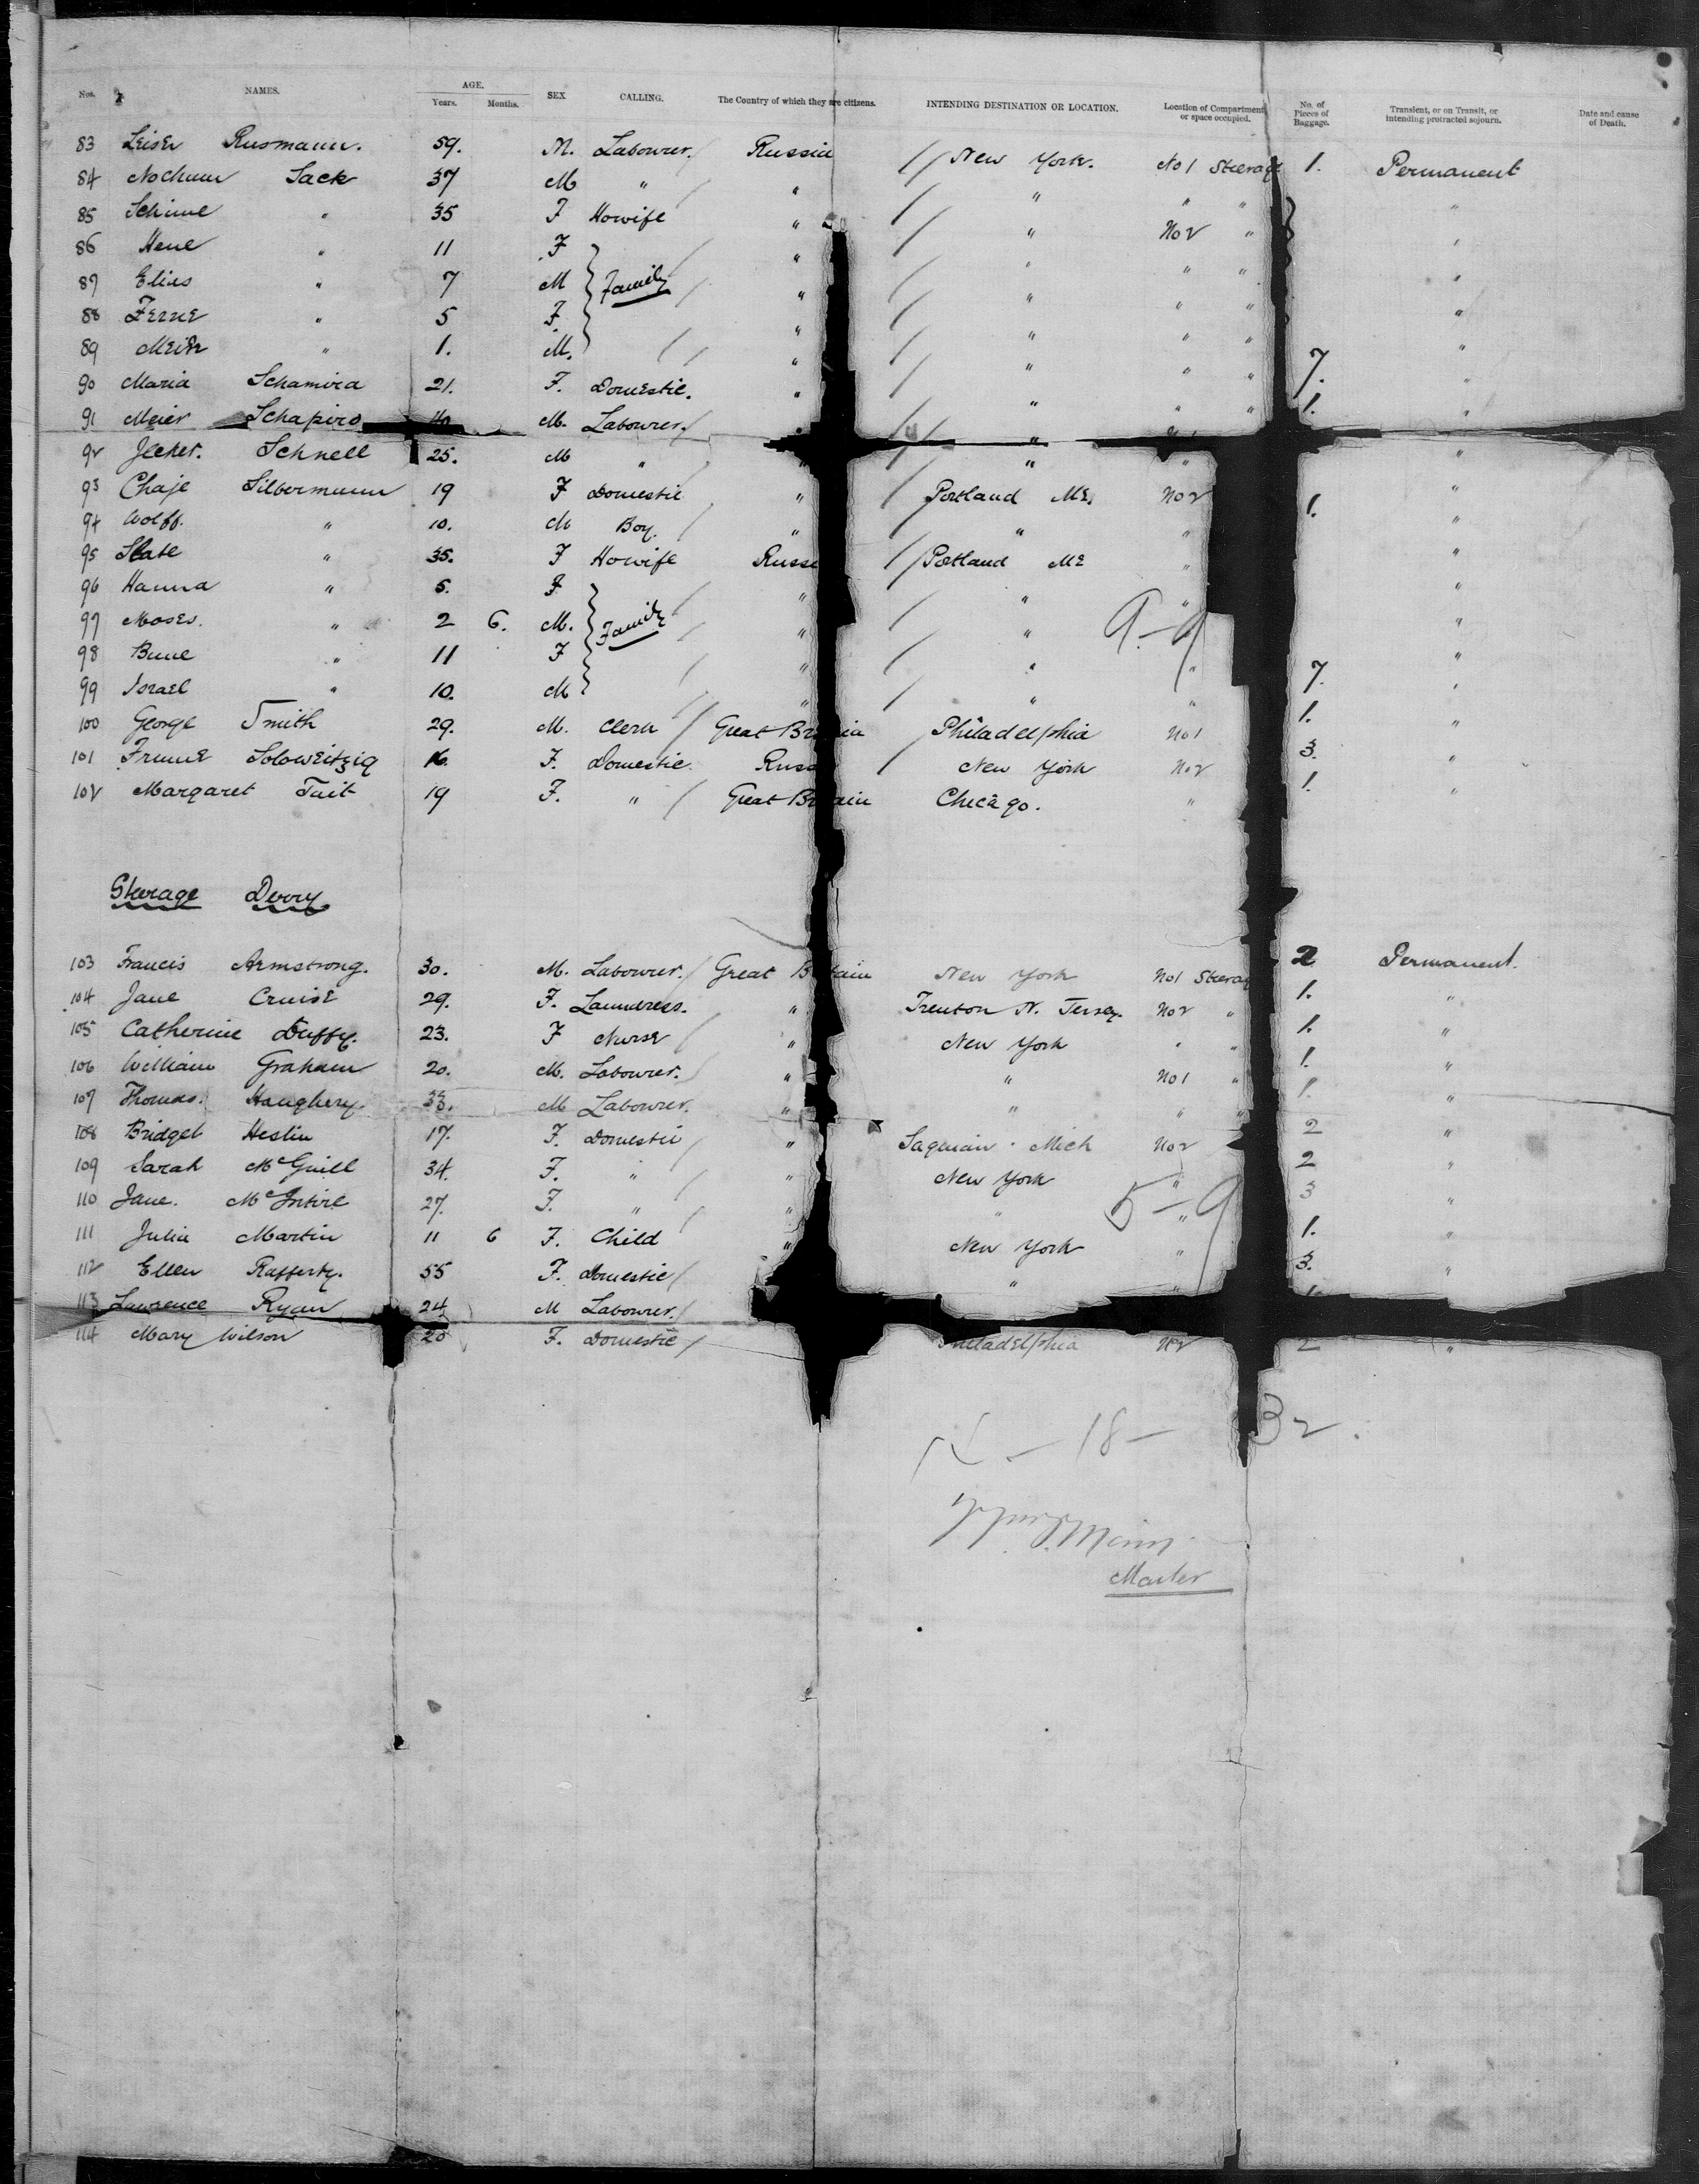 Nos. NAMES. AGE. Years. Months. SEX CALLING. The Country of which they are citizens. INTENDING DESTINATION OR LOCATION. Location of Compartment or space occupied. No. of Pieces of Baggage. Transient, or on Transit, or intending protracted sojourn. Date and cause of Death.
83 Leiser Rusmann. 59. M. Labourer. Russia New York. No 1 Steerage 1. Permanent
84 Nochum Sack 37 M " " " " " "
85 Schime " 35 F Howife " " No 2 " "
86 Hene " 11 F " " " " "
87 Elias " 7 M Family " " " " "
88 Ferne " 5 F. " " " " "
89 Meier " 1. M. " " " " 7. "
90 Maria Schamira 21. F. Domestic. " " " " 1. "
91 Meier Schapiro M. Labourer. " "
92 Schnell 25. M " " " " "
93 Chaje Silbermann 19 F Domestic " Portland Me. No 2 1. "
94 Wolff. " 10. M Boy. " " " "
95 Slate " 35. F Howife Russi Portland Me " "
96 Hanna " 5. F " " " "
97 Moses. " 2 6. M. Family " " "
98 Bune " 11 F " " " "
99 Israel " 10. M " " " 7. "
100 George Smith 29. M. Clerk Great Britain Philadelphia No 1 1. "
101 Frume Soloweitzig 16. F. Domestic. Russ New York No 2 3. "
102 Margaret Tait 19 F. " Great Britain Chicago. " 1. "
Steerage Derry
103 Francis Armstrong. 30. M. Labourer. Great Britain New York No 1 Steerag 2 Permanent.
104 Jane Cruise 29. F. Laundress. " Trenton N. Jersey. No 2 " 1. "
105 Catherine Duffy. 23. F Nurse " New York " " 1. "
106 William Graham 20. M. Labourer. " " No 1 " 1. "
107 Thomas. Haughery. 33. M Labourer. " " " " 1. "
108 Bridget Heslin 17. F. Domestic " Saginaw Mich No 2 2 "
109 Sarah McGuill 34. F. " " New York " 2 "
110 Jane. McIntire 27. F. " " " " 3 "
111 Julia Martin 11 6 F. Child " New York " 1. "
112 Ellen Rafferty. 55 F. Domestic " " 3. "
113 Lawrence Ryan 24 M Labourer.
114 Mary Wilson 20 F. Domestic Philadelphia No 2 2 "
18 — 32.
Master